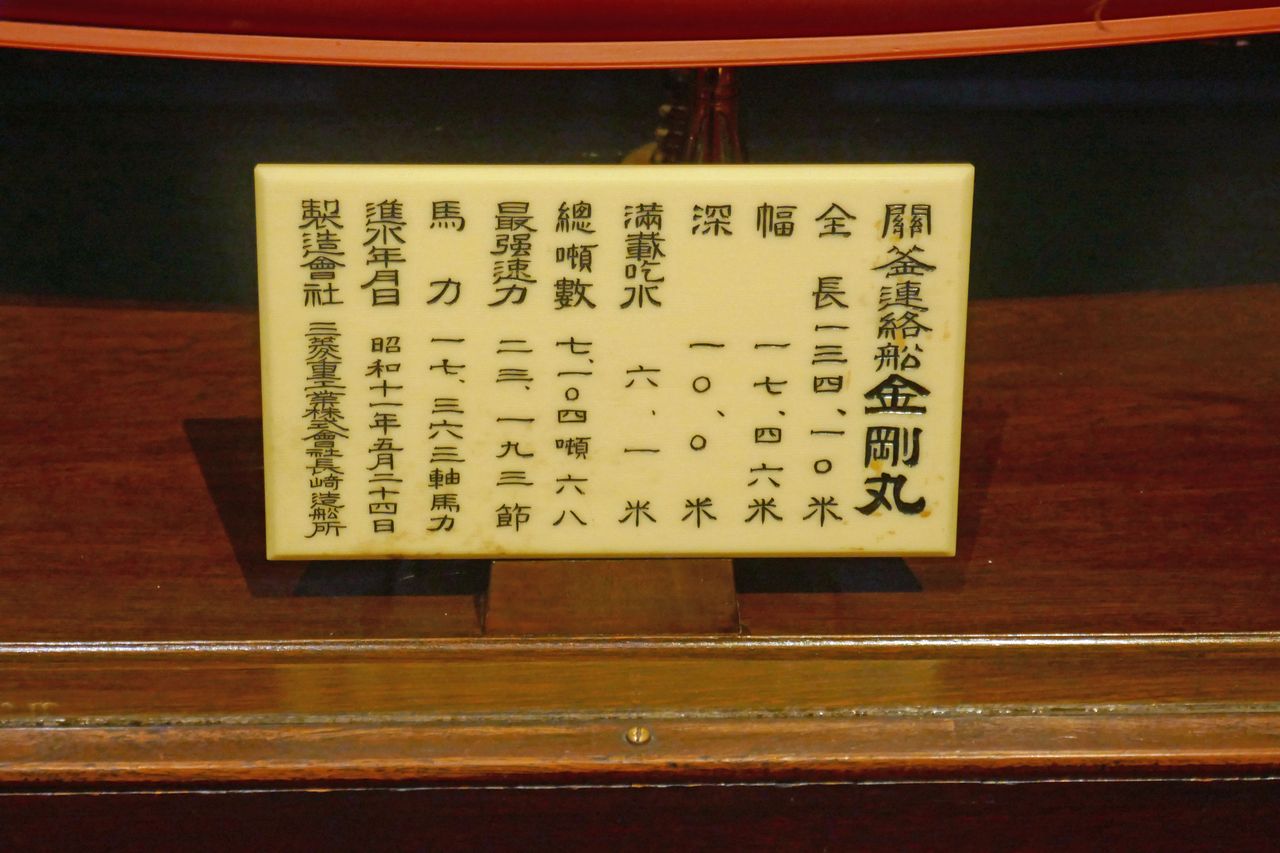 關釜連絡船金剛丸
全長一三四、一〇米
幅一七、四六米
深一〇、〇米
滿載吃水六、一米
總噸數七、一〇四噸六八
最强速力二三、一九三節
馬力一七、三六三軸馬力
進水年月日昭和十一年五月二十四日
製造會社三菱重工業株式會社長崎造船所